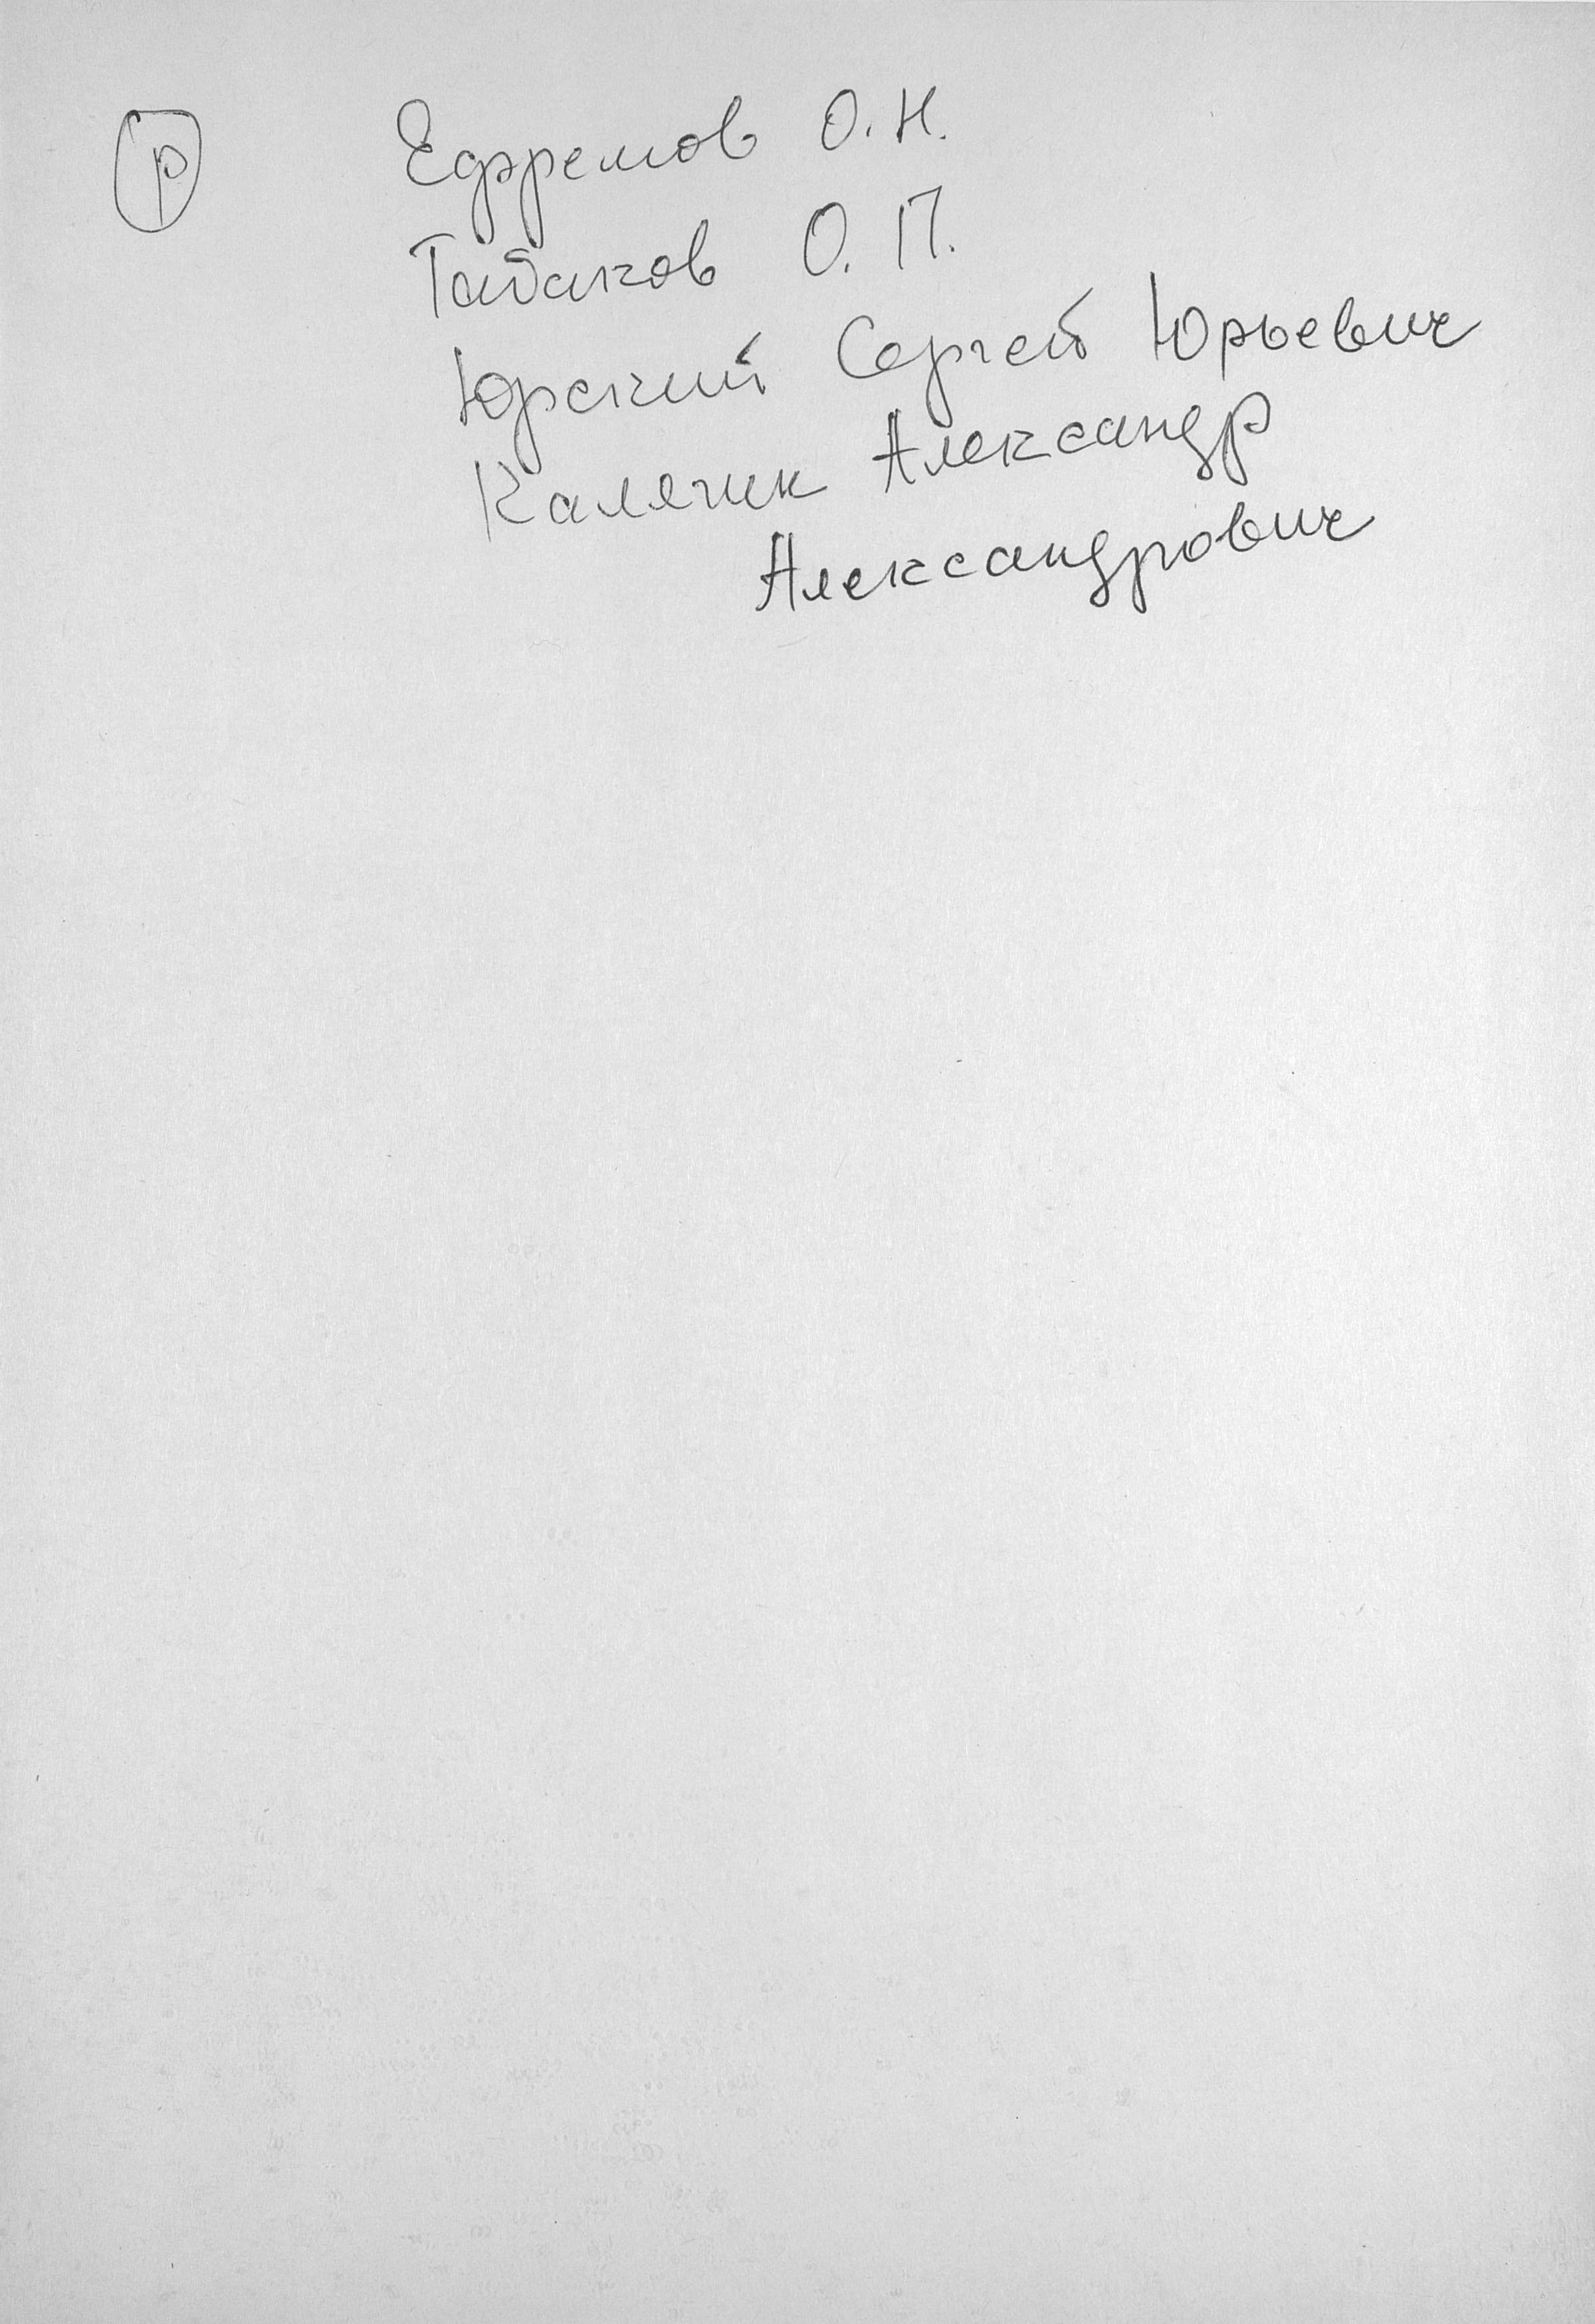 р Ефремов О. Н.
Табаков О. П.
Юрский Сергей Юрьевич
Калягин Александр
Александрович